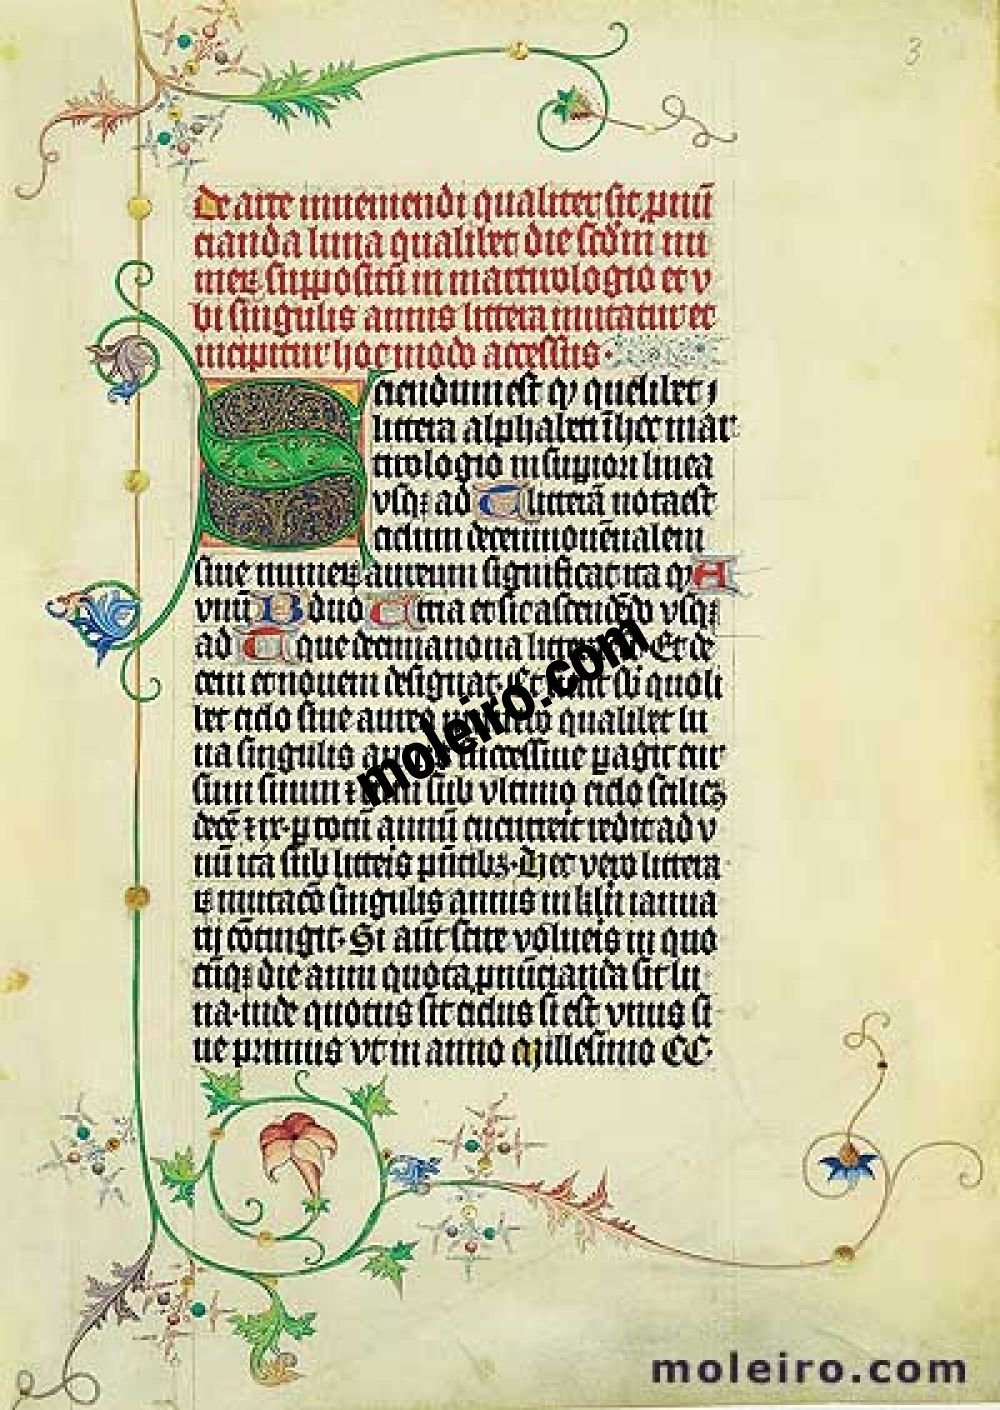 3
De arte inueniendi qualiter sit ꝓnũ
cianda luna qualibet die scdm nu
meꝝ suppositũ in martirologio et v
bi singulis annis littera mutatur et
incipitur hoc modo accessus·
Sciendum est qꝫ quelibet
littera alphabeti ĩ hec mar
tirologio in supiori linea
vsqꝫ ad T litterã nota est
ciclum decennouenalem
siue numeꝝ aureum significat ita qꝫ A
vnũ B duo C tria et sic ascendẽdo vsqꝫ
ad T que decimanona littera Et de
cem et nouem designat· quoli
bet ciclo siue aureo qualibet lu
na singulis successiue pagit cur
sum suum sub vltimo ciclo scilicꝫ
decẽ ⁊ ix· ꝑ totũ annũ cucurrit redit ad v
nũ ita sub litteis pñtibꝫ· Hec vero littera
ꝝ mutacõ singulis annis in klñ ianua
rij cõtingit· Si aũt scire volueis in quo
cũqꝫ die anni quota ꝓnũcianda sit lu
na· inde quotus sit ciclus si est vnus si
ue primus vt in anno Millesimo CC·
moleiro.com
moleiro.com